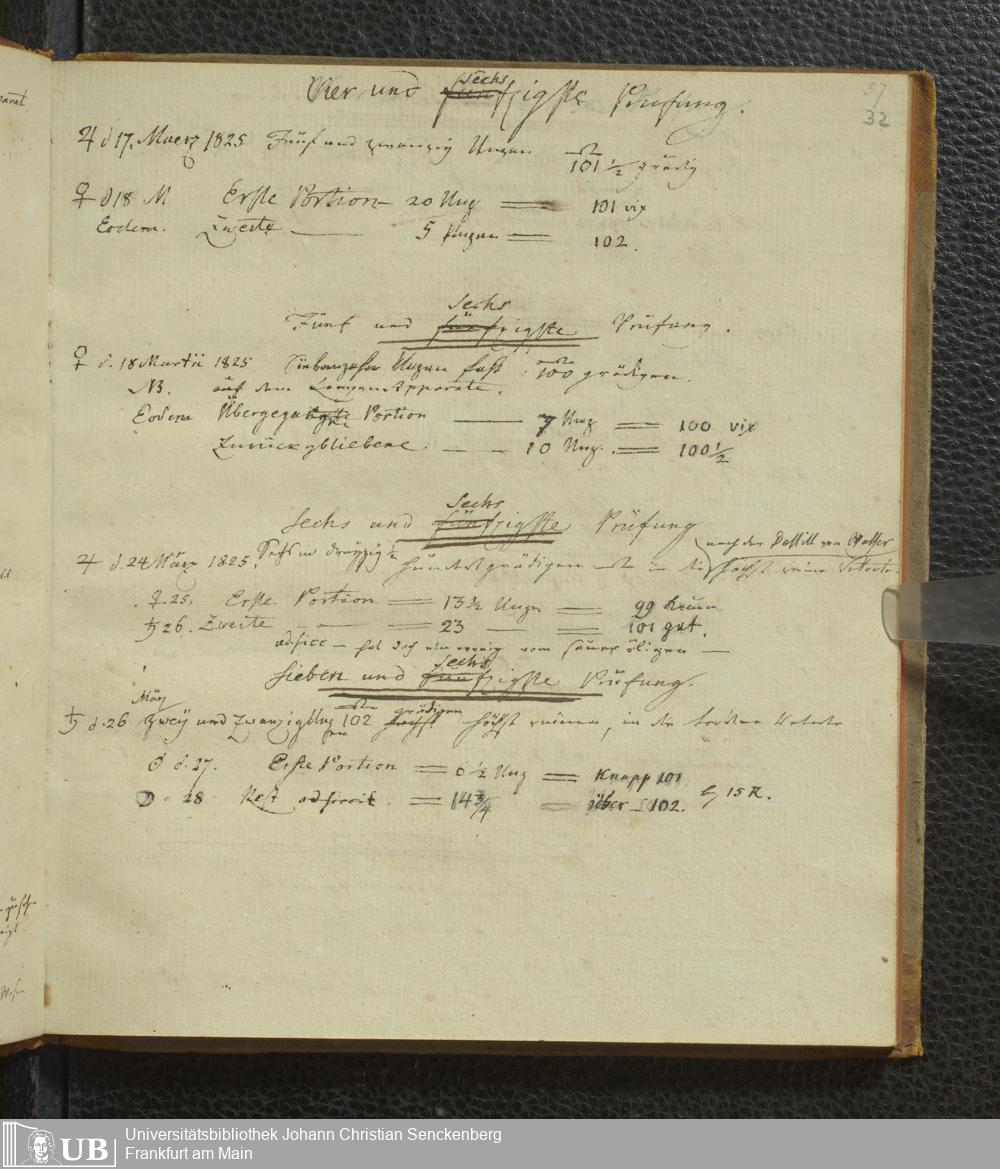 57
32
Vier und sechszigste Prüfung.
♃ d 17. Maerz 1825 Fünf und zwanzig Unzen 101 1/2 grädig
♀ d 18 M Erste Portion 20 Unz = 101 vix
Eodem. Zweite — 5 Unzen = 102.
Sechs
Fünf und fünfzigste Prüfung.
♀ d. 18 Martii 1825 Siebenzehn Unzen fast 100 grädigen.
NB. auf dem Lampenapparate.
Eodem Übergegangne Portion — 7 Unz = 100 vix
Zurückgebliebene. — 10 Unz. = 100 1/2
Sechs
Sechs und fünfzigste Prüfung
nach der Destill von Wasser
♃ d. 24 März 1825. Sechs und dreyzig 1/2 hundertgrädigen in die höchst reine Retorte.
♀. 25. Erste Portion = 13 1/2 Unzen = 99 kaum
♄ 26. Zweite — = 23 — = 101 gut.
ad sicc — hat doch ein wenig vom
sechs
Sieben und fünfzigste Prüfung.
März
♄ d. 26 Zwey und Zwanzig Unzen 102 grädigen höchst reinen, in die trockne Retorte
☉ d. 27. Erste Portion = 6 1/2 Unz = Knapp 101
☽ 28 Rest ad siccit. = 14 3/4 = über 102. 15 R.
UB
Universitätsbibliothek Johann Christian Senckenberg
Frankfurt am Main